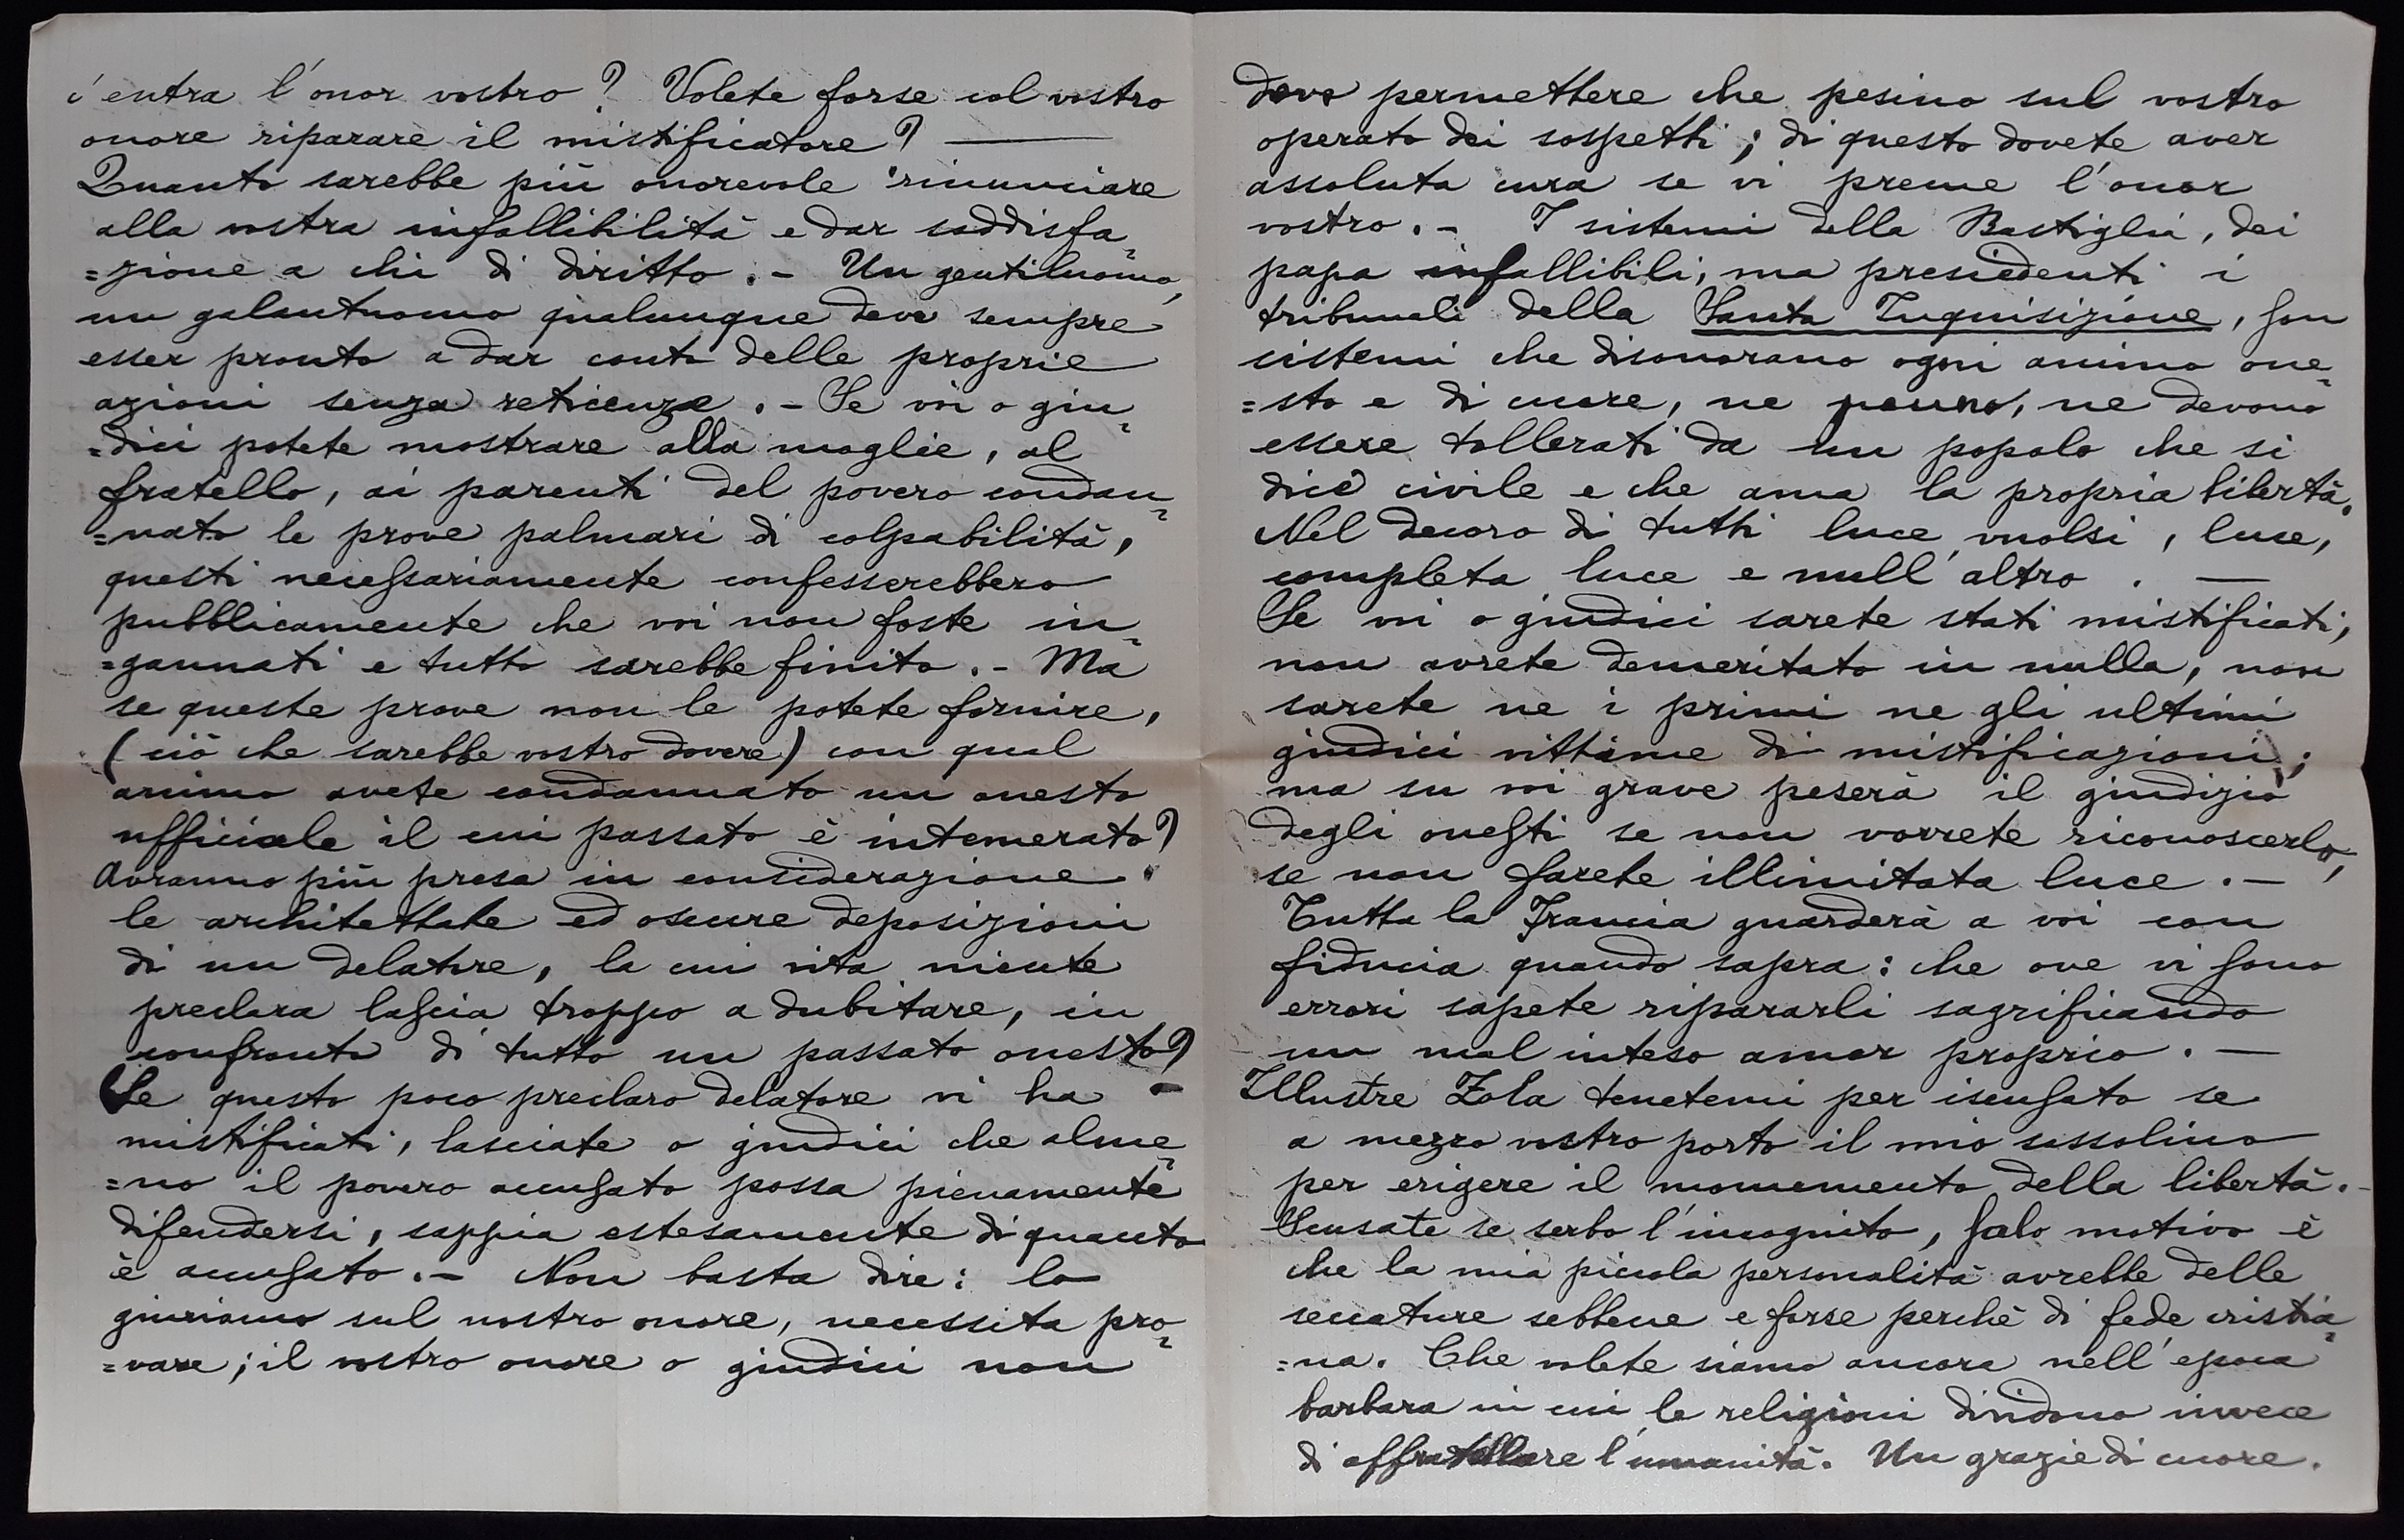 c'entra l'onor vostro? Volete forse col vostro
onore riparare il mistificatore? —
Quanto sarebbe più onorevole rinunciare
alla vostra infallibilità e dar soddisfa=
=zione a chi di diritto. - Un gentiluomo,
un galantuomo qualunque deve sempre
esser pronto a dar conto delle proprie
azioni senza reticenze. - Se voi o giu=
=dici potete mostrare alla moglie, al
fratello, ai parenti del povero condan=
=nato le prove palmari di colpabilità,
questi necessariamente confesserebbero
pubblicamente che voi non foste in=
=gannati e tutto sarebbe finito. - Ma
se queste prove non le potete fornire,
(ciò che sarebbe vostro dovere) con qual
animo avete condannato un onesto
ufficiale il cui passato è intemerato?
Avranno più presa in considerazione
le architettate ed oscure deposizioni
di un delatore, la cui vita niente
preclara lascia troppo a dubitare, in
confronto di tutto un passato onesto?
Se questo poco preclaro delatore vi ha
mistificati, lasciate o giudici che alme=
=no il povero accusato possa pienamente
difendersi, sappia estesamente di quanto
è accusato. - Non basta dire: lo
giuriamo sul nostro onore, necessita pro=
=vare; il vostro onore o giudici non
deve permettere che pesino sul vostro
operato dei sospetti; di questo dovete aver
assoluta cura se vi preme l'onor
vostro. - I sistemi della Bastiglia, dei
papa infallibili, ma presiedenti i
tribunali della Santa Inquisizione, son
sistemi che disonorano ogni animo one=
=sto e di cuore, ne ponno, ne devono
essere tollerati da un popolo che si
dice civile e che ama la propria libertà.
Nel decoro di tutti luce vuolsi, luce,
completa luce e null'altro. —
Se voi o giudici sarete stati mistificati,
non avrete demeritato in nulla, non
sarete ne i primi ne gli ultimi
giudici vittime di mistificazioni;
ma su voi grave peserà il giudizio
degli onesti se non vorrete riconoscerlo,
se non farete illimitata luce. -
Tutta la Francia guarderà a voi con
fiducia quando sapra: che ove vi sono
errori sapete ripararli sagrificando
un mal inteso amor proprio. —
Illustre Zola tenetemi per iscusato se
a mezzo vostro porto il mio sassolino
per erigere il monumento della libertà. -
Scusate se serbo l'incognito, solo motivo è
che la mia piccola personalità avrebbe delle
seccature sebbene e forse perchè di fede cristia=
=na. Che volete siamo ancora nell'epoca
barbara in cui le religioni dividono invece
di affratellare l'umanità. Un grazie di cuore.